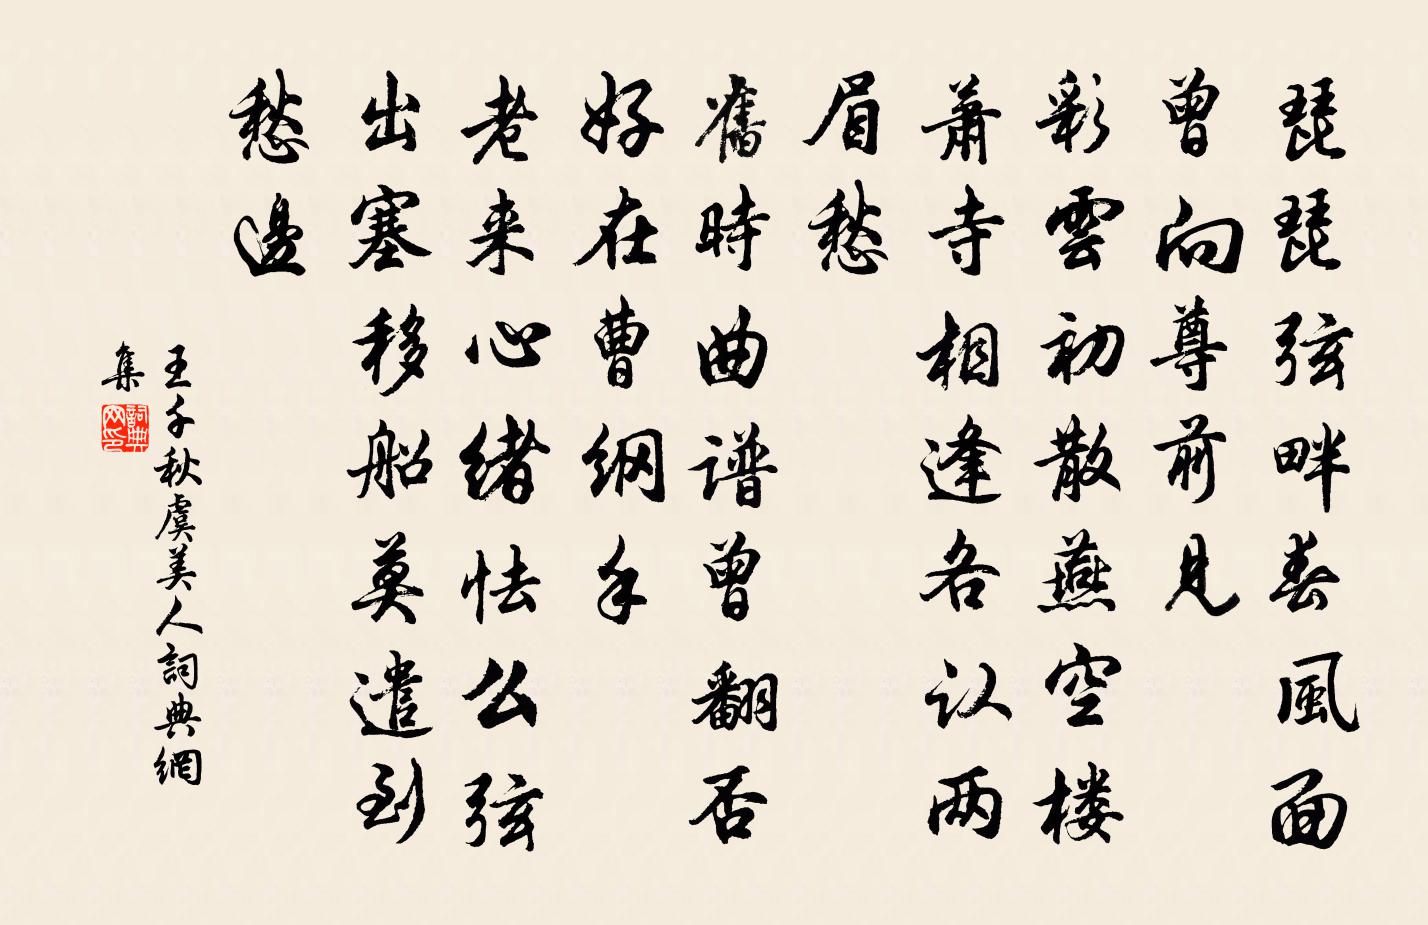 琵琵弦畔春風面
曾向尊前見
彩雲初散燕空楼
蕭寺相逢各认两
眉愁
舊時曲谱曾翻否
好在曹纲手
老来心绪怯么弦
出塞移船莫遣到
愁邊
王千秋虞美人詞典網
集
詞典网印